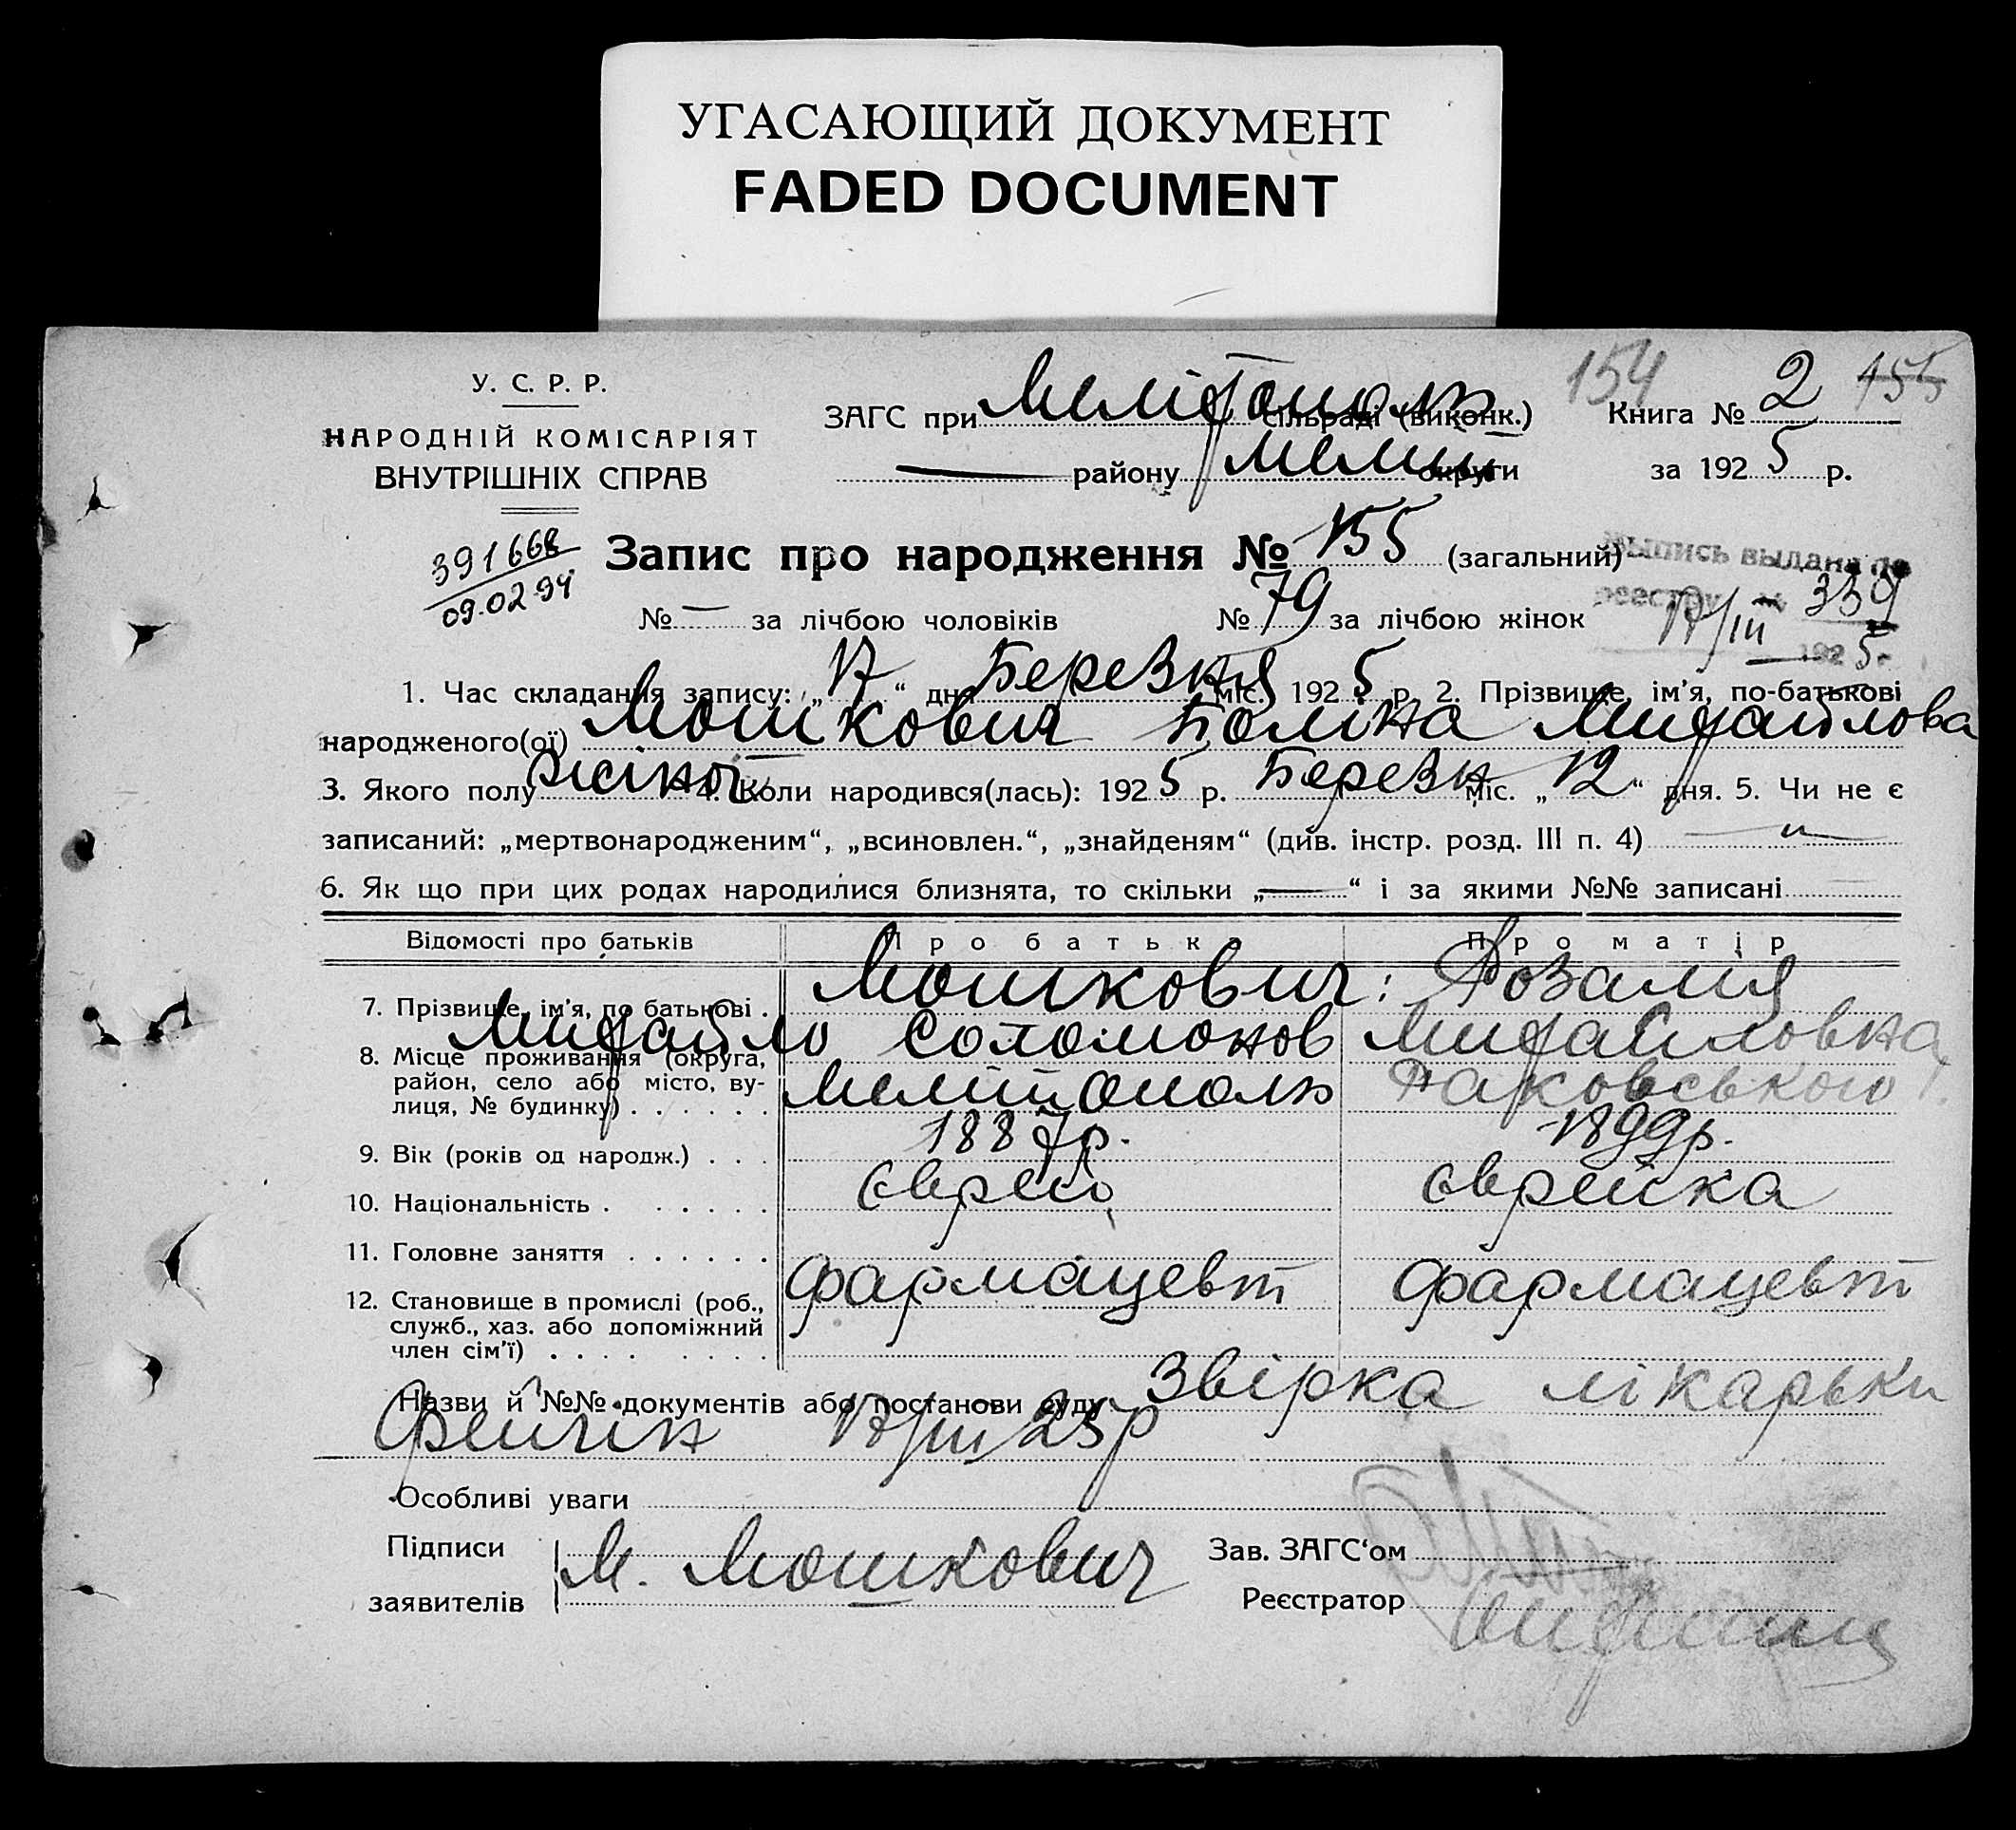 УГАСАЮЩИЙ ДОКУМЕНТ
FADED DOCUMENT
154 155
У. С. Р. Р.
НАРОДНІЙ КОМІСАРІЯТ
ВНУТРІШНІХ СПРАВ
ЗАГС при Мелітополь сільраді (виконк.) Книга № 2
— району Меліт округи за 1925 р.
391668
09.02.94
Запис про народження № 155 (загальний)
выпись выдана по
реестру № 339
17/III 1925 г.
№ — за лічбою чоловіків № 79 за лічбою жінок
1. Час складання запису: „17“ дня Березня міс. 1925 р. 2. Прізвище, ім’я, по-батькові
народженого(ої) Мошкович Поліна Михайлова
3. Якого полу жіноч. 4. Коли народився(лась): 1925 р. Березн міс. „12“ дня. 5. Чи не є
записаний: „мертвонародженим“, „всиновлен.“, „знайденям“ (див. інстр. розд. III п. 4) — „ —
6. Як що при цих родах народилися близнята, то скільки „—“ і за якими №№ записані
Відомості про батьків Про батька Про матір
7. Прізвище, ім’я, по батькові . Мошкович: Розалія
Михайло Соломонов Михайловна
8. Місце проживання (округа,
район, село або місто, ву-
лиця, № будинку) . . . . . . Мелітополь Раковського
9. Вік (років од народж.) . . . 1887р. 1899р.
10. Національність . . . . . . Єврей Єврейка
11. Головне заняття . . . . . .
Фармацевт Фармацевт
12. Становище в промислі (роб.,
служб., хаз. або допоміжний
член сім’ї) . . . . . . . .
Назви й №№ документів або постанови суду Звірка лікарьки
Фейгін 17/III 25р
Особливі уваги
Підписи
заявителів М. Мошкович
Зав. ЗАГС‘ом
Реєстратор